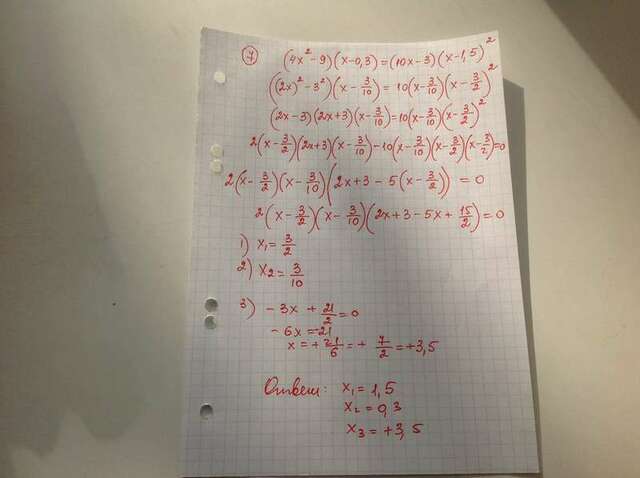 7
(4x² - 9)(x - 0,3) = (10x - 3)(x - 1,5)²
((2x)² - 3²)(x - 3/10) = 10(x - 3/10)(x - 3/2)²
(2x - 3)(2x + 3)(x - 3/10) = 10(x - 3/10)(x - 3/2)²
2(x - 3/2)(2x + 3)(x - 3/10) - 10(x - 3/10)(x - 3/2)(x - 3/2) = 0
2(x - 3/2)(x - 3/10)(2x + 3 - 5(x - 3/2)) = 0
2(x - 3/2)(x - 3/10)(2x + 3 - 5x + 15/2) = 0
1) x₁ = 3/2
2) x₂ = 3/10
3) - 3x + 21/2 = 0
- 6x = -21
x = + 21/6 = + 7/2 = +3,5
Ответ: x₁ = 1,5
x₂ = 0,3
x₃ = +3,5